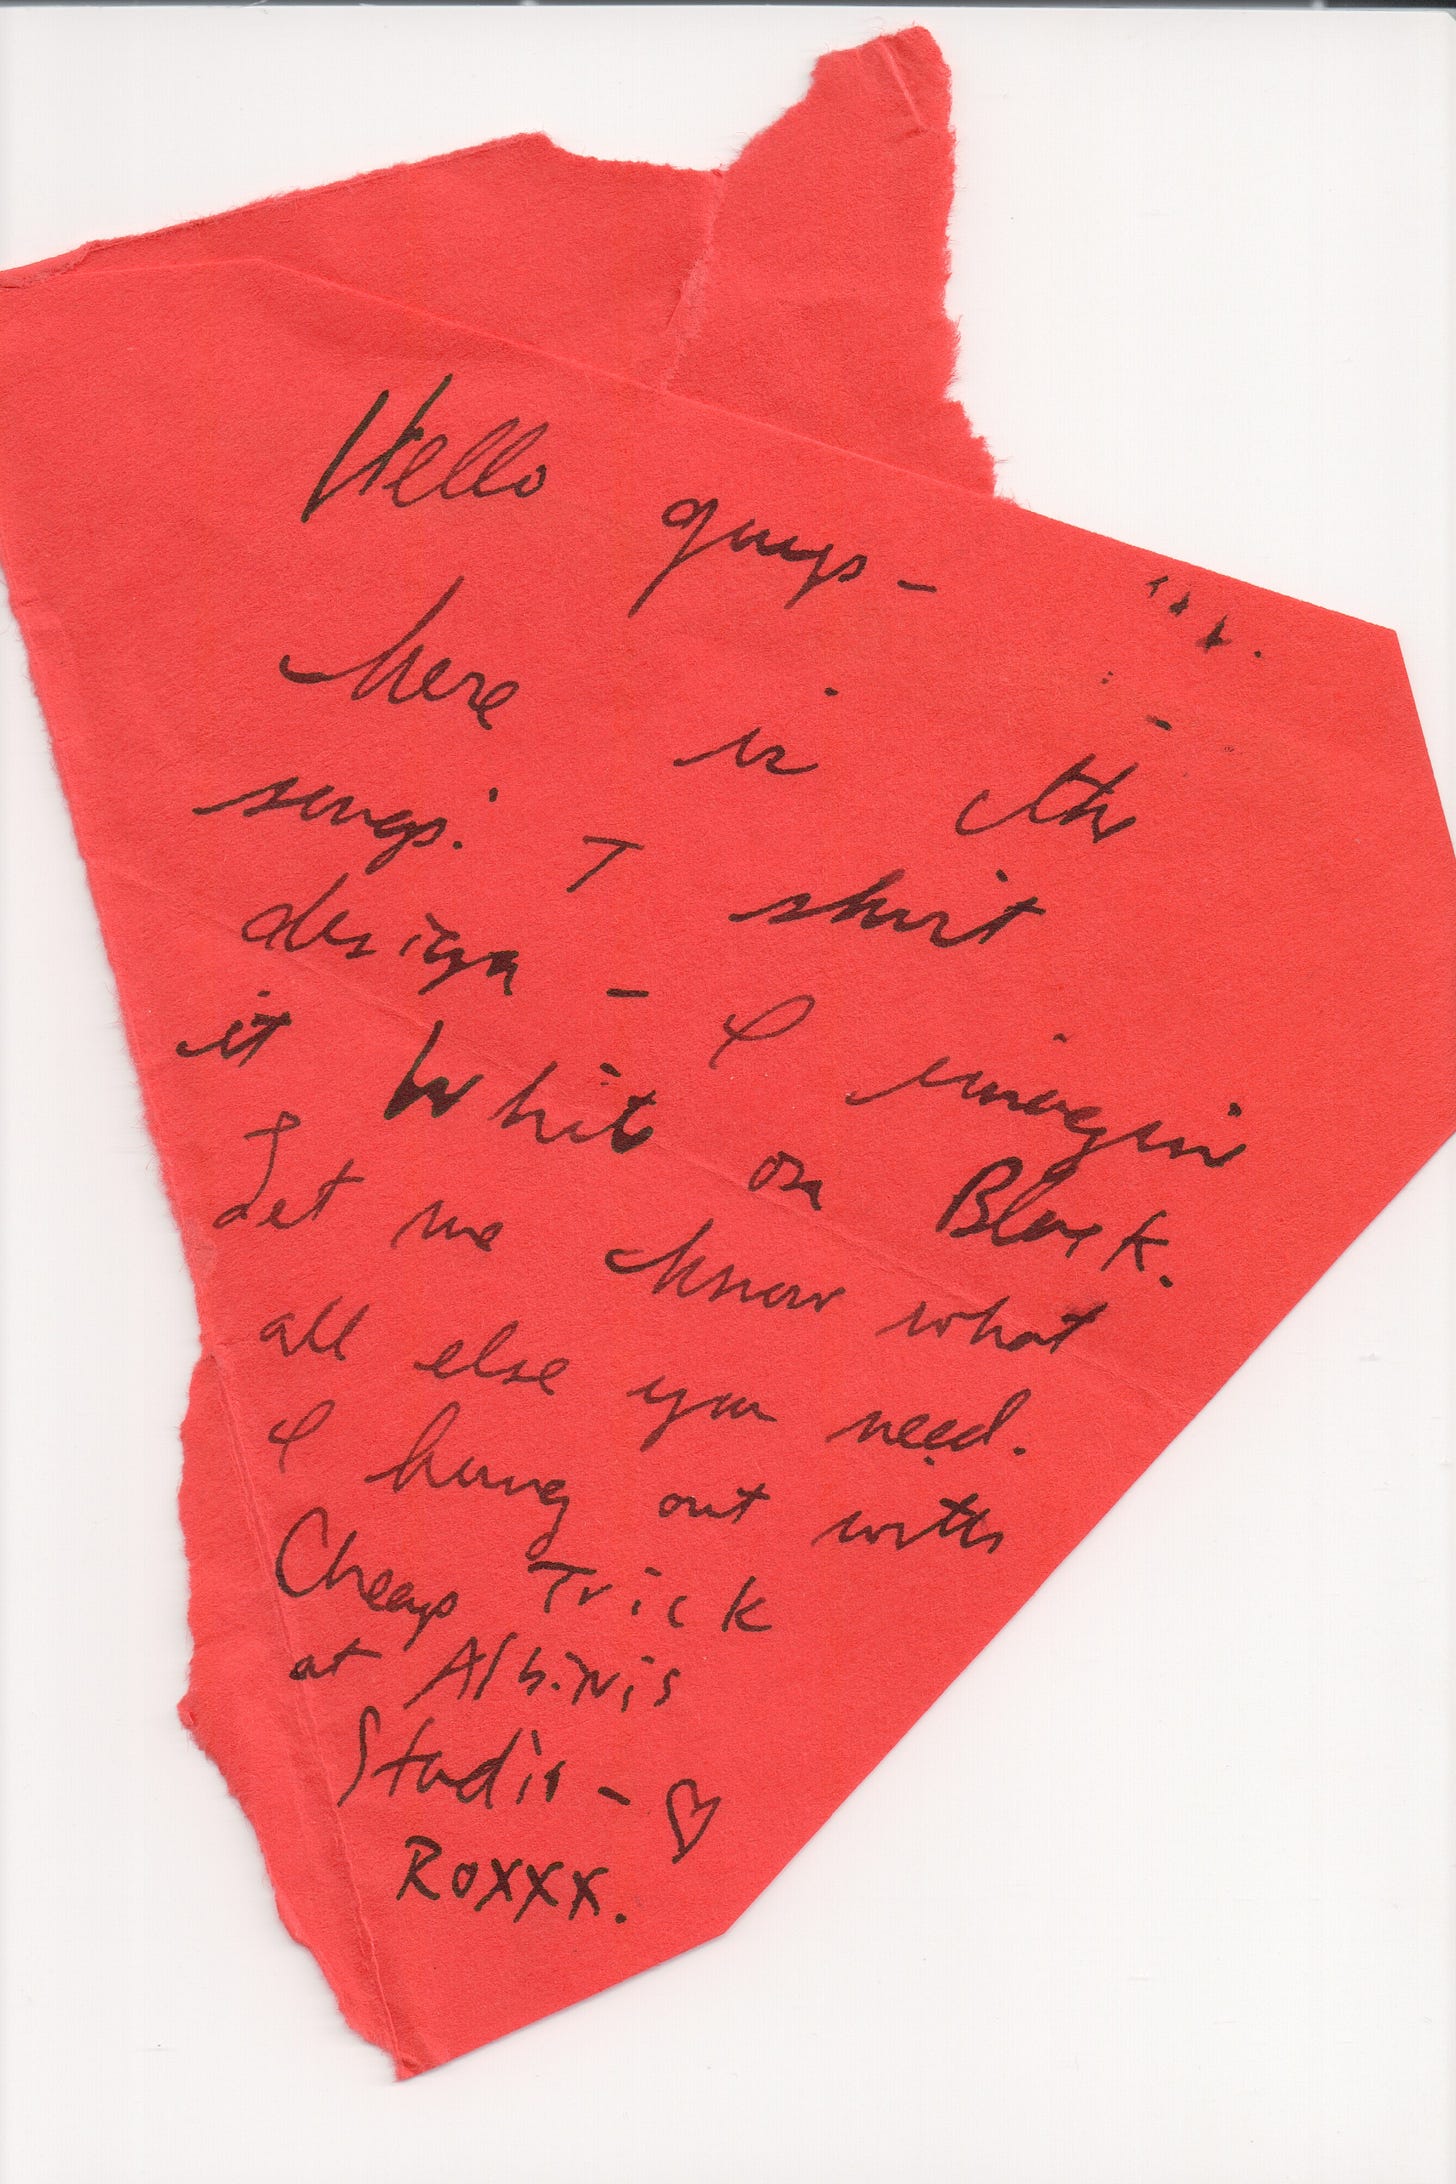 Hello guys –
here is the
songs: T shirt
design – I imagin
it White on Black.
Let me know what
all else you need.
I hung out with
Cheap Trick
at Albinis
Studio – ♡
Roxxx.